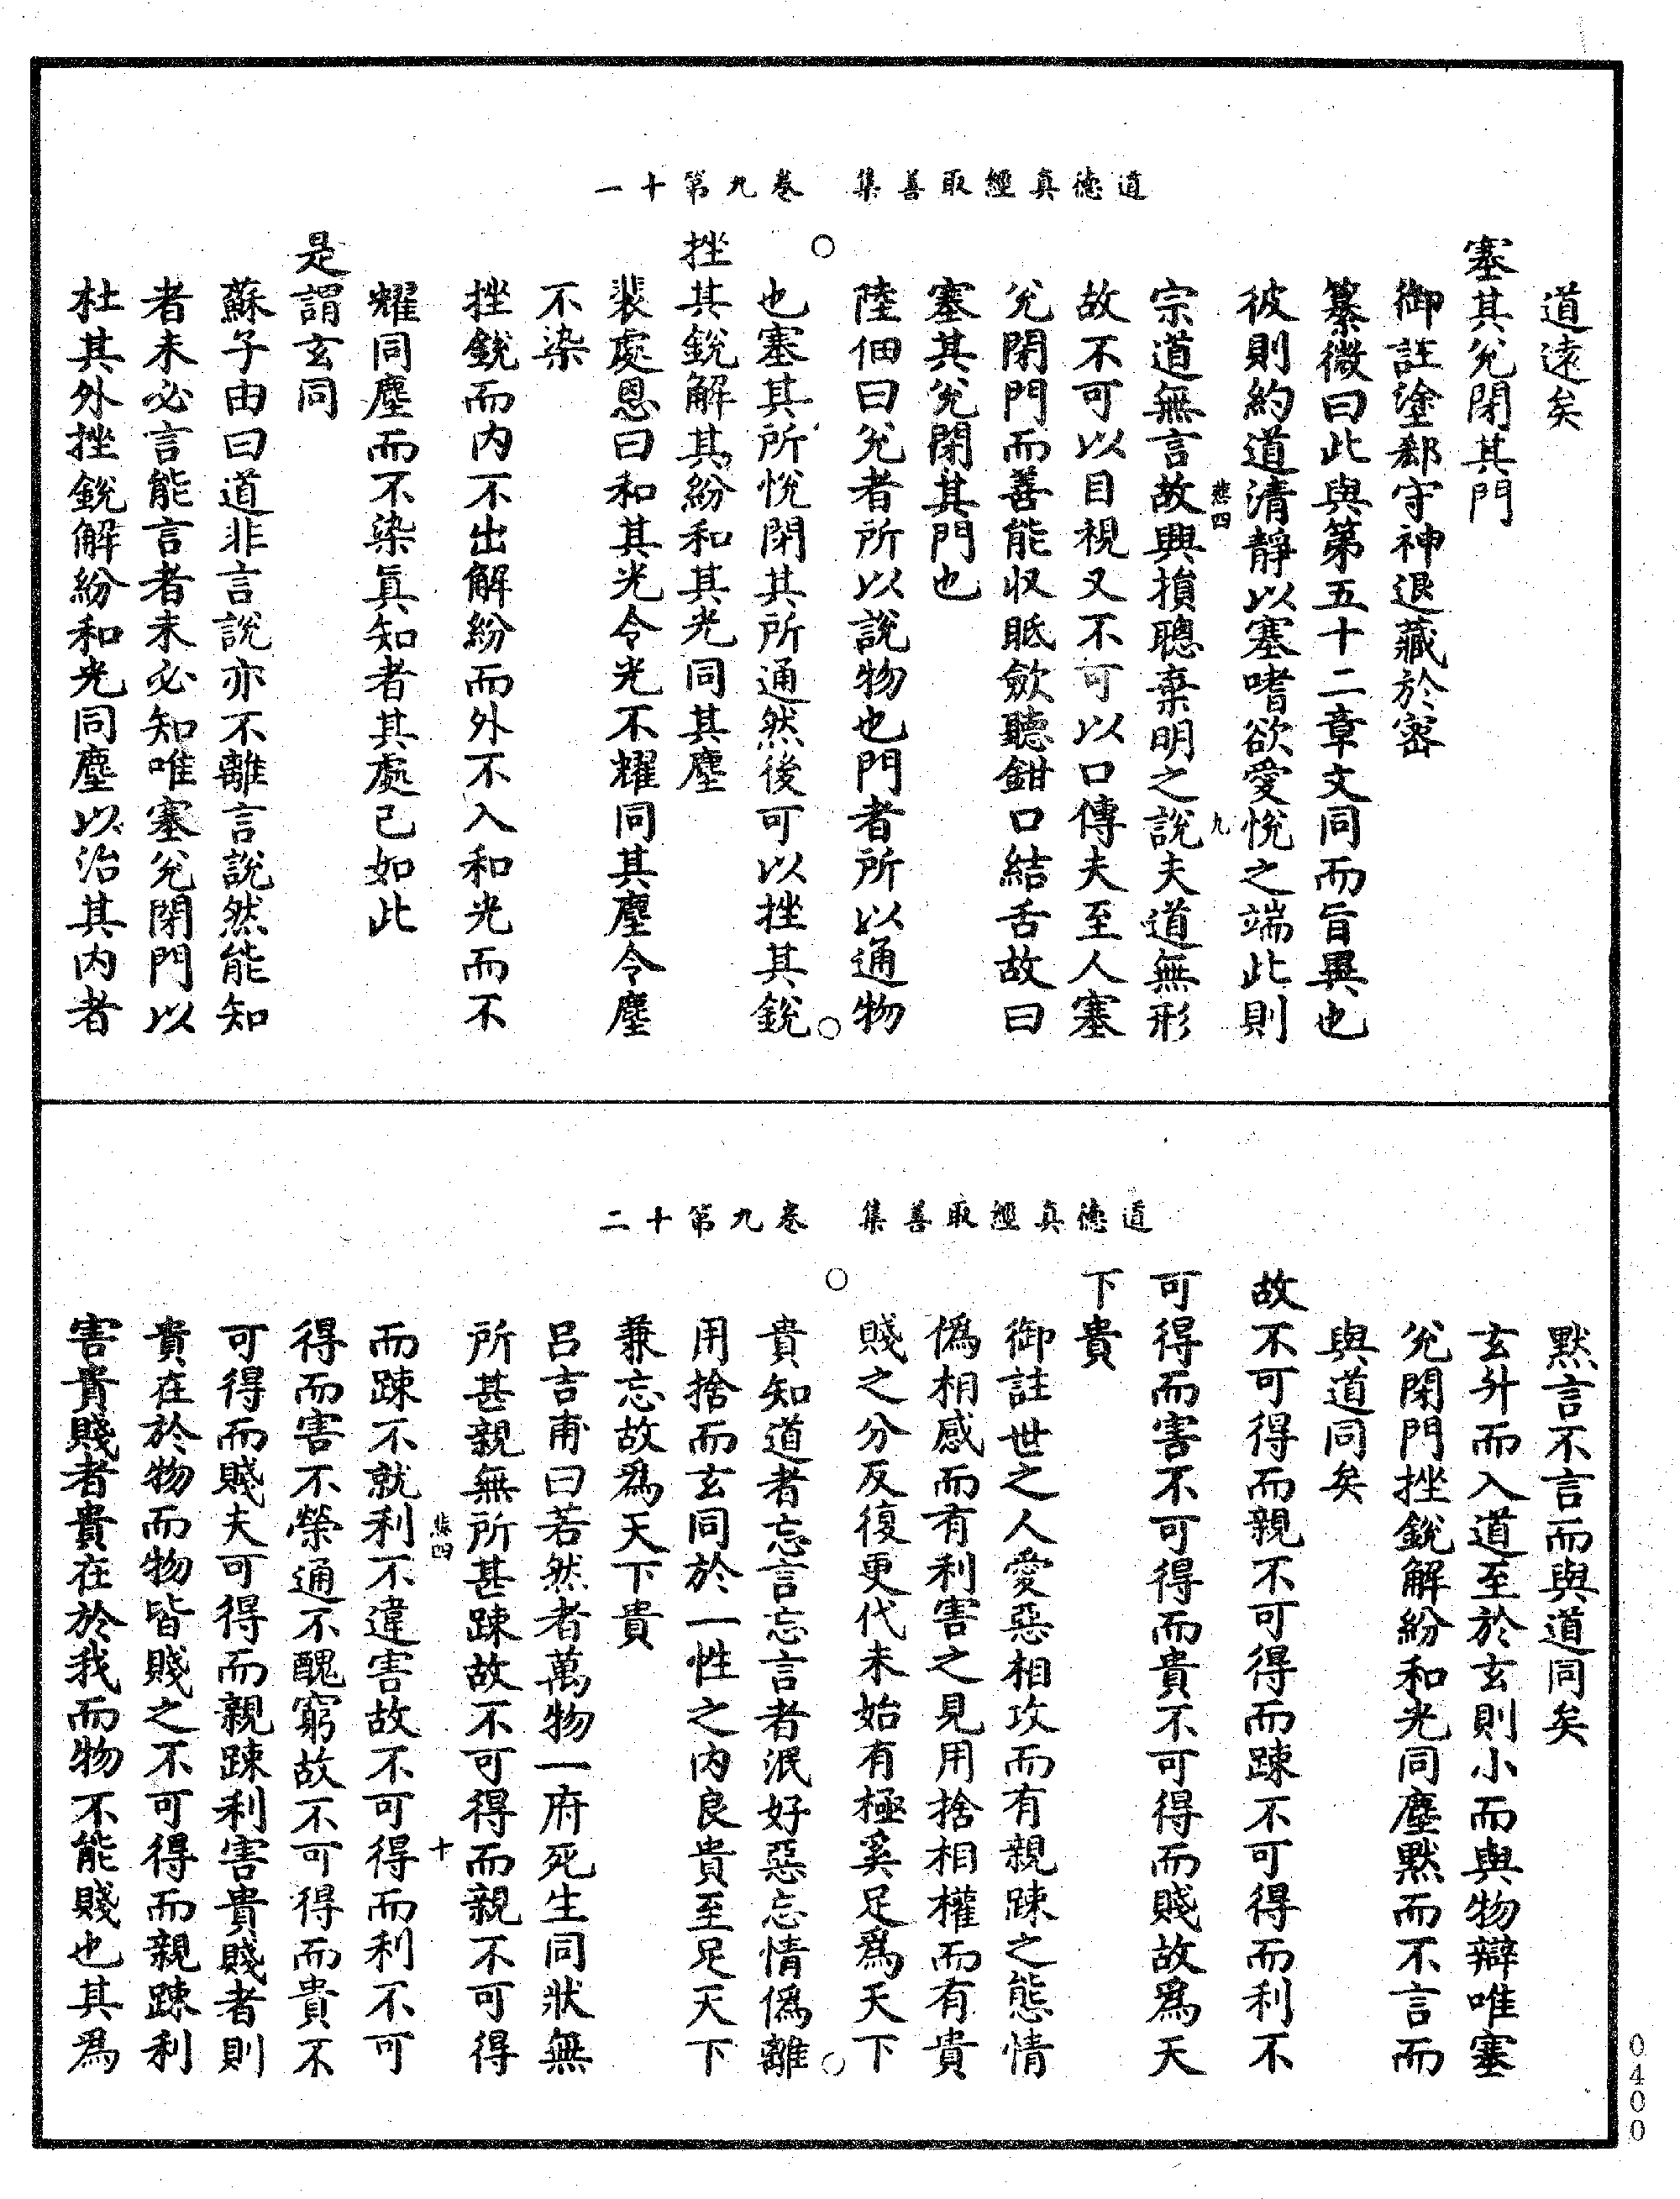 道德真經取善集　卷九第十一
道遠矣
塞其兌閉其門
御註塗郄守神退藏於密
纂微曰此與第五十二章文同而旨異也
彼則約道清靜以塞嗜欲愛悅之端此則
四
九
宗道無言故興損聰棄明之說夫道無形
故不可以目視又不可以口傳夫至人塞
兌閉門而善能收眂斂聽鉗口結舌故曰
塞其兌閉其門也
陸佃曰兌者所以說物也門者所以通物
也塞其所悅閉其所通然後可以挫其銳
挫其銳解其紛和其光同其塵
裴處恩曰和其光令光不耀同其塵令塵
不染
挫銳而內不出解紛而外不入和光而不
耀同塵而不染真知者其處己如此
是謂玄同
蘇子由曰道非言說亦不離言說然能知
者未必言能言者未必知唯塞兌閉門以
杜其外挫銳解紛和光同塵以治其內者
道德真經取善集　卷九第十二
默言不言而與道同矣
玄升而入道至於玄則小而與物辯唯塞
兌閉門挫銳解紛和光同塵默而不言而
與道同矣
故不可得而親不可得而踈不可得而利不
可得而害不可得而貴不可得而賤故為天
下貴
御註世之人愛惡相攻而有親踈之態情
偽相感而有利害之見用捨相權而有貴
賤之分反復更代未始有極奚足為天下
貴知道者忘言忘言者泯好惡忘情偽離
用捨而玄同於一性之內良貴至足天下
兼忘故為天下貴
呂吉甫曰若然者萬物一府死生同狀無
所甚親無所甚踈故不可得而親不可得
四
十
而踈不就利不違害故不可得而利不可
得而害不榮通不醜窮故不可得而貴不
可得而賤夫可得而親踈利害貴賤者則
貴在於物而物皆賤之不可得而親踈利
害貴賤者貴在於我而物不能賤也其為
0400